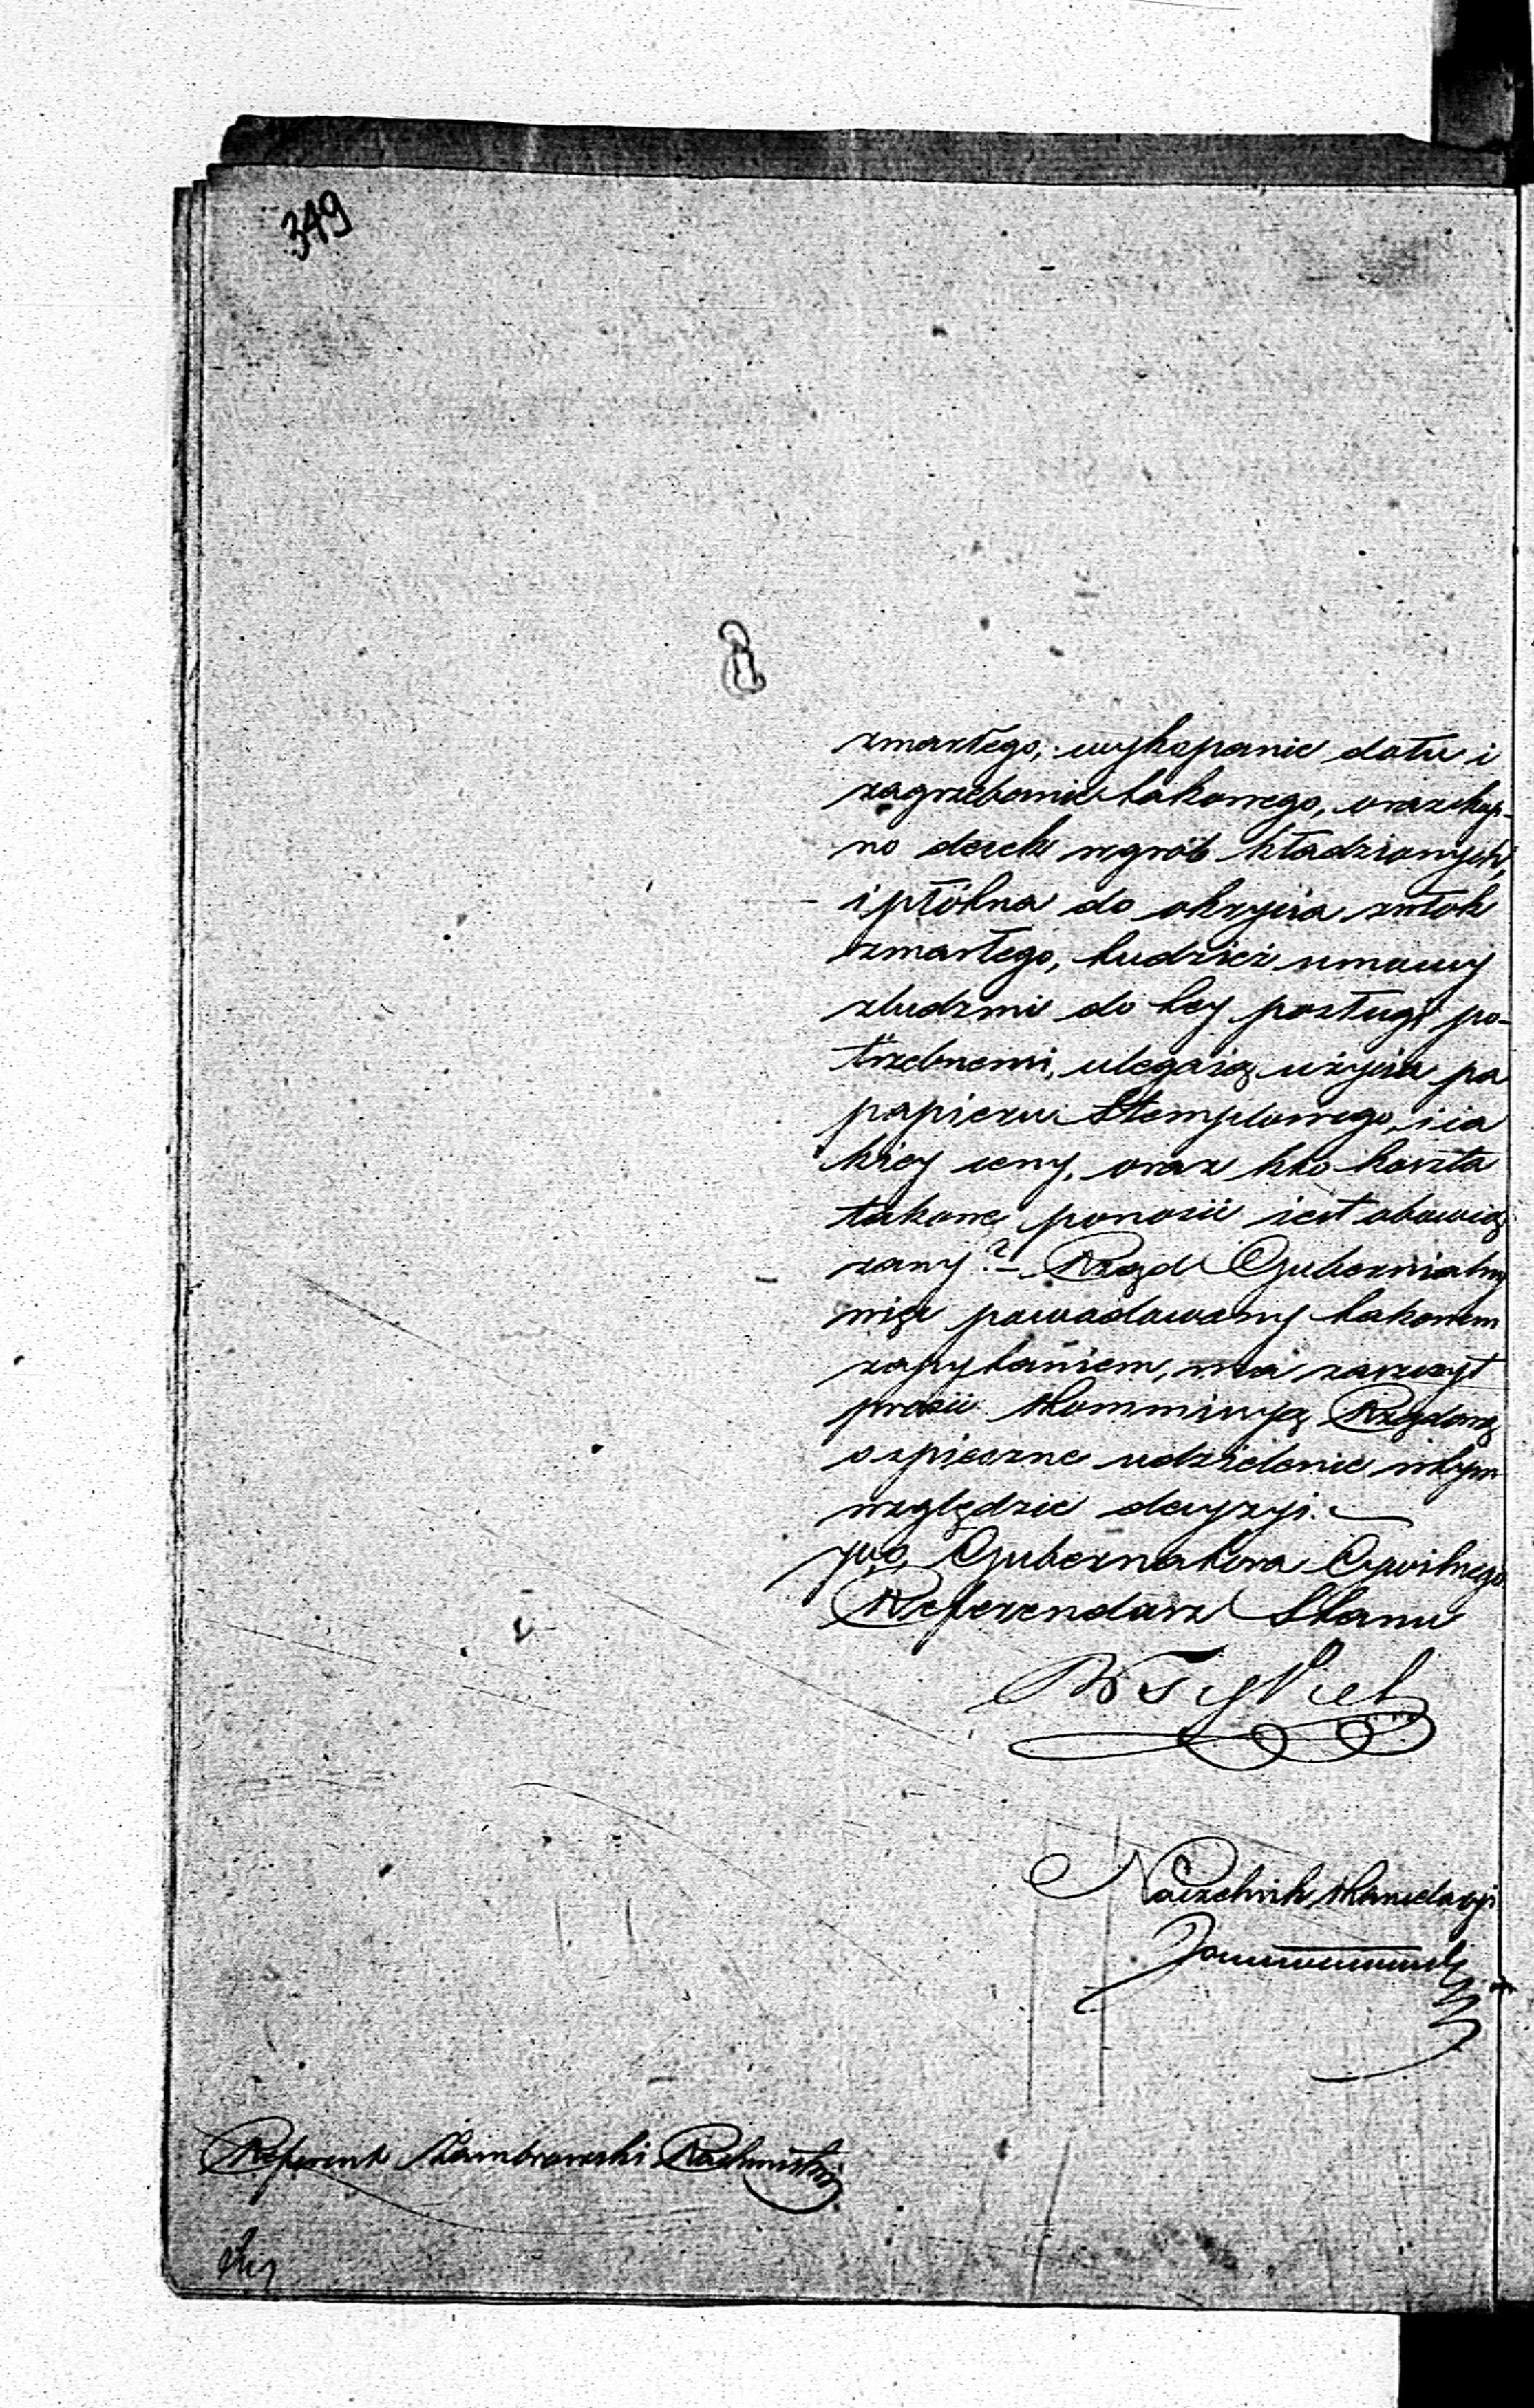 349
zmarłego, wykopanie dołu i
zagrzebanie takowego, oraz kup-
no desek w grób kładzionych,
i płótna do okrycia zwłok
zmarłego, tudzież umowy
z ludzmi do tey posługi po-
trzebnemi, ulegaią użyciu pa
papieru Stemplowego, i ia
kiey ceny, oraz kto koszta
takowe ponosić iest obowią
zany? – Rząd Gubernialny
więc powodowany takowem
zapytaniem, ma zaszczyt
prosić Kommissyą Rządową
o spieszne udzielenie w tym
względzie decyzyi. –
Gubernatora Cywilnego
Referendarz Stanu
Naczelnik Kancelaryi
Referent Rachmistrz